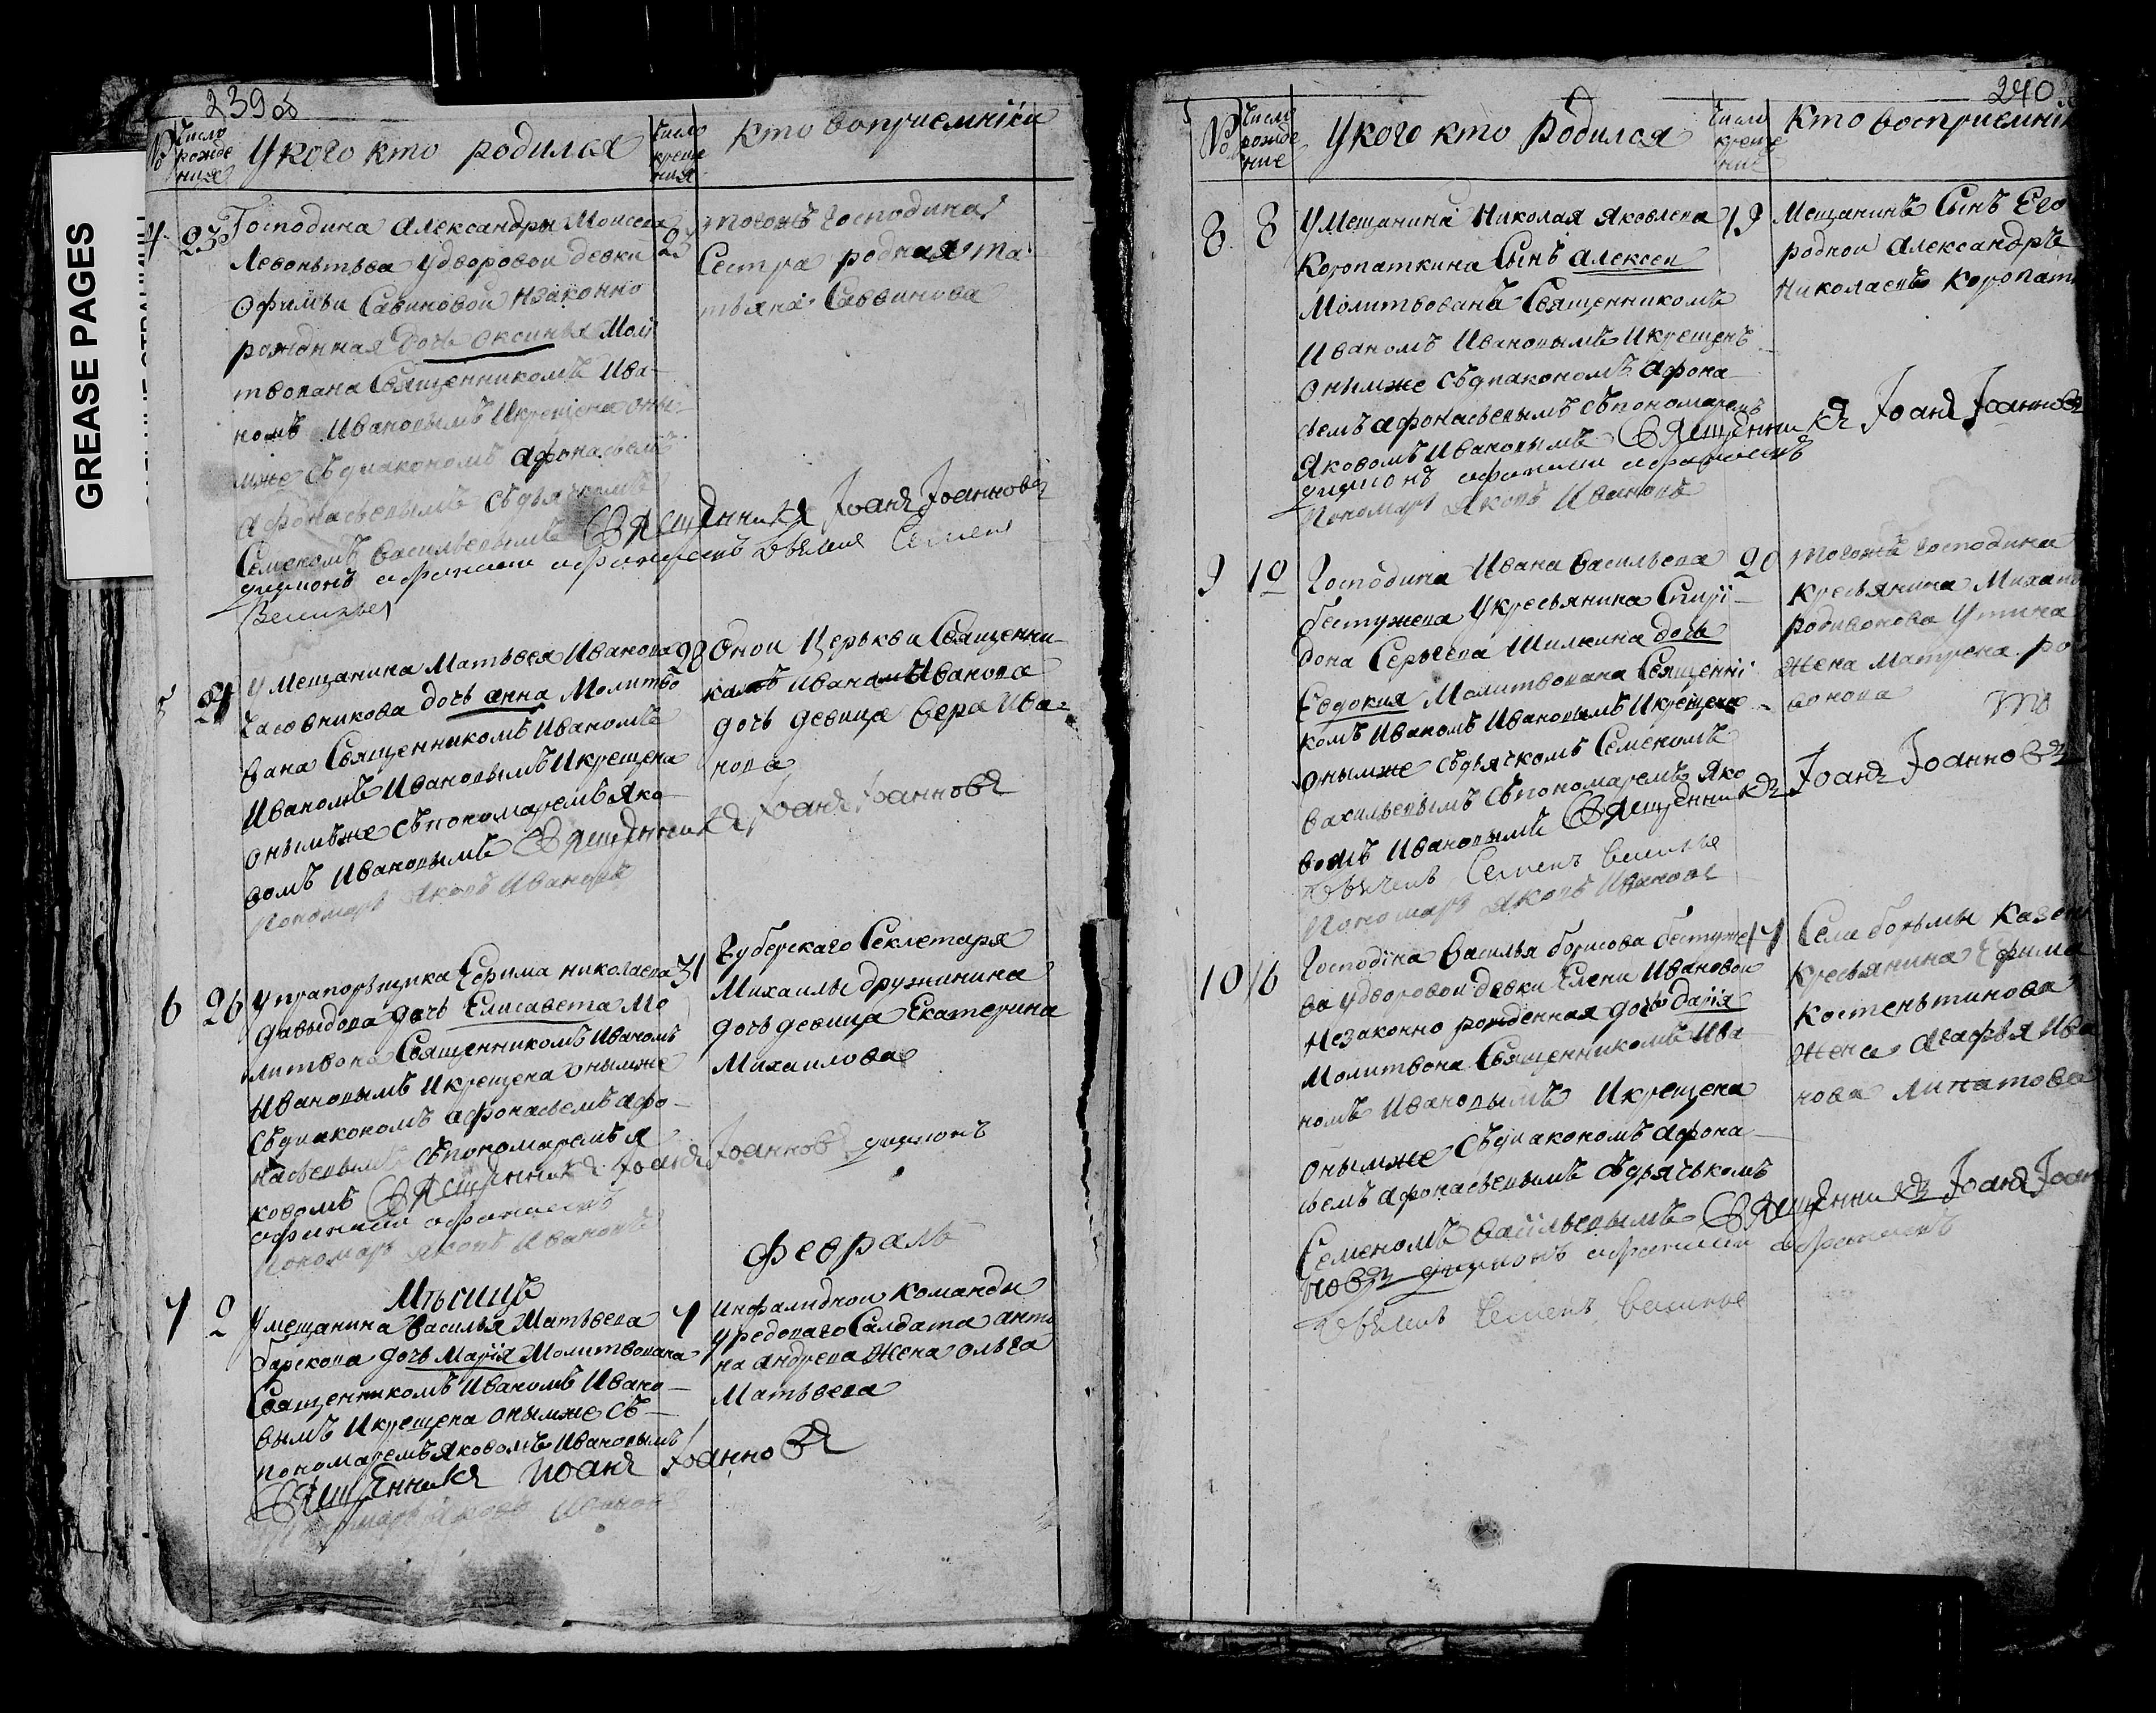 GREASE PAGES
239 об
№
Число рождения
У кого кто родился
Число крещения
Кто восприемники
4
23
Господина Александры Моисеева
Левонтьева У дворовой девки
Офимьи Савиновой Незаконно
рожденная Дочь Оксинья Моли
твована Священникомъ Ива-
номъ Ивановымъ Икрещена оны-
мже Съдиакономъ Афонасьемъ
Афонасьевымъ Съдьячкомъ
Семеномъ Васильевымъ
23
тогожъ Господина
Сестра родная Та
тьяна Саввинова
Священникъ Иоаннъ Иоанновъ
Васильевъ
5
У Мещанина Матьвея Иванова
Часовникова дочь Анна Молитво
вана Священникомъ Иваномъ
Ивановымъ Икрещена
онымъже Съпономаремъ Яко-
вомъ Ивановымъ Священникъ Иоаннъ Иоанновъ
Пономарь Яковъ Ивановъ
28
Оной Церькви Священни-
Иванова
дочь девица Вера Ива-
нова
6
26
У прапорьщика Ефима Николаева
Давыдова дочь Елисавета Мо
литвона Священникомъ Иваномъ
Ивановымъ Икрещена онымже
Съдиакономъ Афонасьемъ Афо-
насьевымъ Съпономаремъ Я
ковомъ Священникъ Иоаннъ Иоанновъ диаконъ
Пономарь Яковъ Ивановъ
31
Губерскаго Секлетаря
Михаилы Дружинина
дочь девица Екатерина
Михаилова
Мѣсицъ
Февраль
7
2
У мещанина Василья Матьвева
дочь Марія Молитвована
Священникомъ Иваномъ Ивано-
вымъ Икрещена онымже Съ-
пономаремъ Яковомъ Ивановымъ
Священникъ Иоаннъ Иоанновъ
Пономарь Яковъ Ивановъ
7
Инфалидной Команды
Уредоваго Салдата Анто
на Андреева Жена Ольга
Матьвева
240
№
Число рождение
У кого кто Родился
Число крещение
Кто восприемни
8
8
У Мещанина Николая Яковлева
Коропаткина Сынъ Алексей
Молитвованъ Священникомъ
Иваномъ Ивановымъ Икрещенъ
Онымже Съдиакономъ Афона-
сьемъ Афонасьевымъ Съпономаремъ
Яковомъ Ивановымъ Священникъ Иоаннъ Иоанновъ
Пономарь Яковъ Ивановъ
19
Мещанинъ Сынъ Его
родной Александръ
Николаевъ Коропат
9
10
Господина Ивана Васильева
Бестужева У кресьянина Спирі-
дона Сергеева Шилкина дочь
Евдокия Молитвована Священні
комъ Иваномъ Ивановымъ Икрещена
Онымже Съдьячкомъ Семеномъ
Васильевымъ Съпономаремъ Яко
вомъ Ивановымъ Священникъ Иоаннъ Иоанновъ
Семенъ Василье
Пономарь Яковъ Ивановъ
20
тогожъ Господина
Кресьянина Михаи
Родивонова Утина
Жена Матрена Ро
вонова
10
16
Господіна Василья Борисова Бестуже
ва У дворовой девки Елены Ивановой
Незаконно рожденная дочь Дарія
Молитвона Священникомъ Ива
номъ Ивановымъ Икрещена
Онымже Съдиакономъ Афона-
сьемъ Афонасьевымъ Съдьячькомъ
Семеномъ Васильевымъ Священникъ Иоаннъ Иоан
новъ диаконъ
Семенъ Василье
17
Села Борьмы Казен
Кресьянина Ефима
Костеньтинова
Жена Агафья Ива
нова Липатова